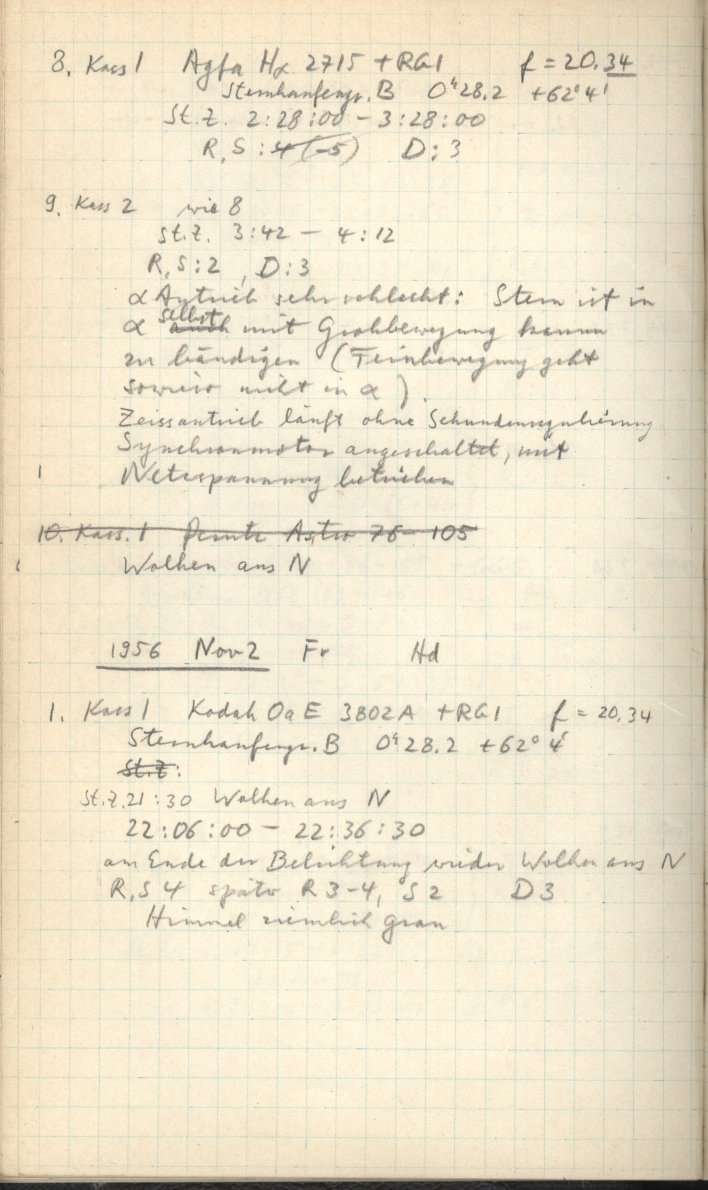 8. Kass 1 Agfa Hα 2715 + RG1 f = 20.34
Sternhaufengr. B 0ʰ28.2 +62° 4'
St. Z. 2:28:00 - 3:28:00
R, S : 4 (-5) D: 3
9. Kass 2 wie 8
St. Z. 3:42 - 4:12
R, S: 2, D: 3
α Antrieb sehr schlecht: Stern ist in
α selbst auch mit Grobbewegung kaum
zu bändigen (Feinbewegung geht
sowieso nicht in α).
Zeissantrieb läuft ohne Sekundenregulierung
Synchronmotor angeschaltet, mit
Netzspannung betrieben
10. Kass. 1 Perutz Astro 76-105
Wolken aus N
1956 Nov 2 Fr Hd
1. Kass 1 Kodak OaE 3802A + RG1 f = 20.34
Sternhaufengr. B 0ʰ28.2 +62° 4'
St. Z:
St. Z. 21:30 Wolken aus N
22:06:00 - 22:36:30
am Ende der Belichtung wieder Wolken aus N
R, S 4 später R 3-4, S 2 D 3
Himmel ziemlich grau